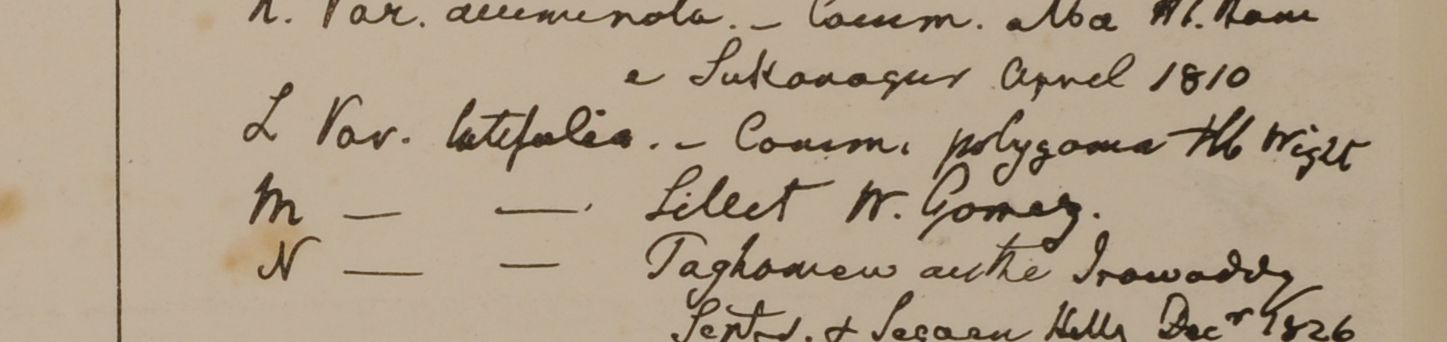 K. Var. acuminata. – Comm. alba Hb. Ham
e Sukanagur April 1810
L Var. latifolia. – Comm. polygama Hb Wight
M — — Sillet W. Gomez.
N — — Taghomew on the Irawaddy
Septr. & Segaen Hills Decr 1826